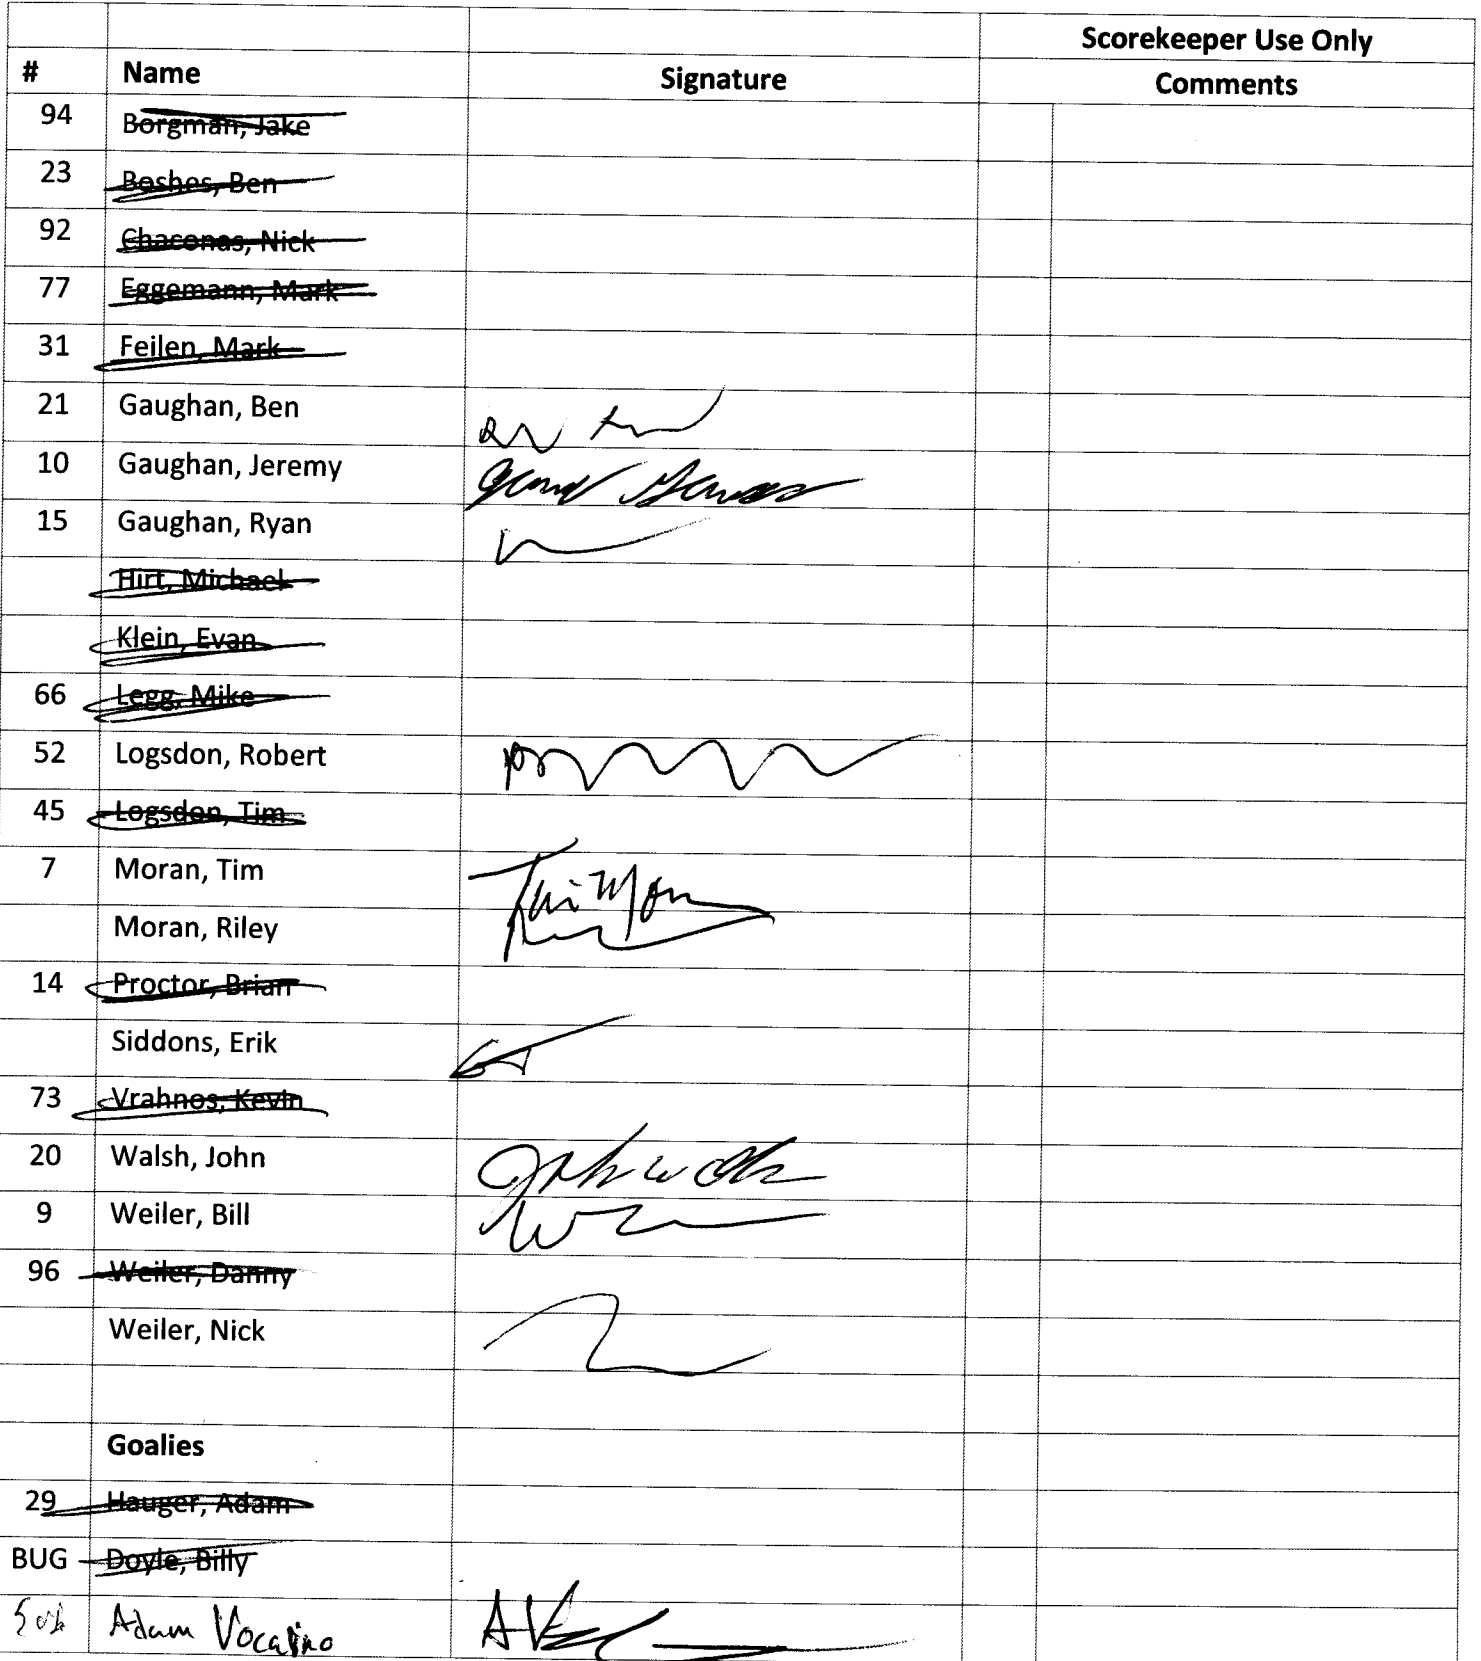 Scorekeeper Use Only
# Name Signature Comments
94 Borgman, Jake
23 Boshes, Ben
92 Chaconas, Nick
77 Eggemann, Mark
31 Feilen, Mark
21 Gaughan, Ben
10 Gaughan, Jeremy
15 Gaughan, Ryan
Hirt, Michael
Klein, Evan
66 Legg, Mike
52 Logsdon, Robert
45 Logsdon, Tim
7 Moran, Tim Tim Moran
Moran, Riley
14 Proctor, Brian
Siddons, Erik
73 Vrahnos, Kevin
20 Walsh, John John Walsh
9 Weiler, Bill
96 Weiler, Danny
Weiler, Nick
Goalies
29 Hauger, Adam
BUG Doyle, Billy
Adam